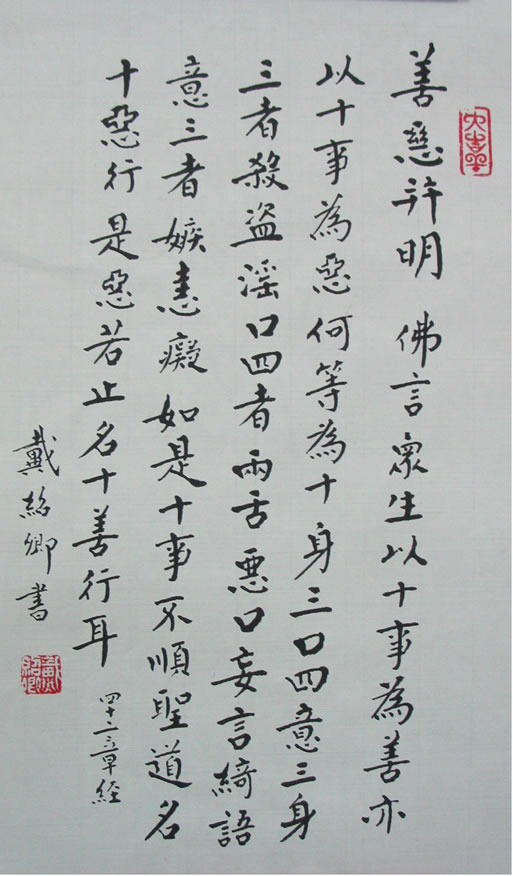 善惡并明 佛言眾生以十事為善亦
以十事為惡何等為十身三口四意三身
三者殺盜淫口四者兩舌惡口妄言綺語
意三者嫉恚癡如是十事不順聖道名
十惡行是惡若止名十善行耳
四十二章經
戴紹卿書